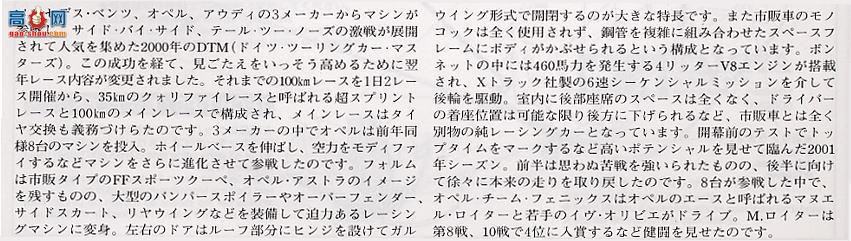 高手网
gao-shou.com
デス・ベンツ、オペル、アウディの3メーカーからマシンが
サイド・バイ・サイド、テール・ツー・ノーズの激戦が展開
されて人気を集めた2000年のDTM(ドイツ・ツーリングカー・マス
ターズ)。この成功を経て、見ごたえをいっそう高めるために翌
年レース内容が変更されました。それまでの100kmレースを1日2レ
ース開催から、35kmのクォリファイレースと呼ばれる超スプリント
レースと100kmのメインレースで構成され、メインレースはタイ
ヤ交換も義務づけらたのです。3メーカーの中でオペルは前年同
様8台のマシンを投入。ホイールベースを伸ばし、空力をモディファ
イするなどマシンをさらに進化させて参戦したのです。フォルム
は市販タイプのFFスポーツクーペ、オペル・アストラのイメージ
を残すものの、大型のバンパースポイラーやオーバーフェンダー、
サイドスカート、リヤウイングなどを装備して迫力あるレーシン
グマシンに変身。左右のドアはルーフ部分にヒンジを設けてガル
ウイング形式で開閉するのが大きな特長です。また市販車のモノ
コックは全く使用されず、鋼管を複雑に組み合わせたスペースフ
レームにボディがかぶせられるという構成となっています。ボン
ネットの中には460馬力を発生する4リッターV8エンジンが搭載
され、Xトラック社製の6速シーケンシャルミッションを介して
後輪を駆動。室内に後部座席のスペースは全くなく、ドライバー
の着座位置は可能な限り後方に下げられるなど、市販車とは全く
別物の純レーシングカーとなっています。開幕前のテストでトッ
プタイムをマークするなど高いポテンシャルを見せて臨んだ2001
年シーズン。前半は思わぬ苦戦を強いられたものの、後半に向け
て徐々に本来の走りを取り戻したのです。8台が参戦した中で、
オペル・チーム・フェニックスはオペルのエースと呼ばれるマヌエ
ル・ロイターと若手のイヴ・オリビエがドライブ。M.ロイターは
第8戦、10戦で4位に入賞するなど健闘を見せたのです。